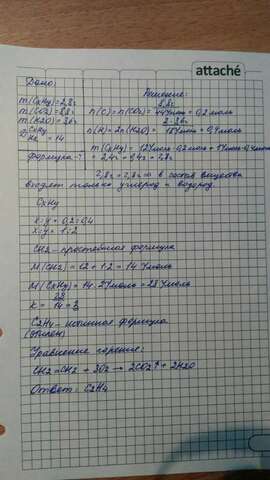 attaché
Дано:
Решение:
m(CxHy)=2,8г
m(CO2)=8,8г
m(H2O)=3,6г
D CxHy/H2 = 14
Формула-?
n(C)=n(CO2)= 8,8г/44г/моль = 0,2 моль
n(H)=2n(H2O)= 2·3,6/18г/моль = 0,4моль
m(CxHy)= 12г/моль·0,2моль + 1г/моль·0,4моль
= 2,4г + 0,4г = 2,8г
2,8г = 2,8г ⇒ в состав вещества
входят только углерод и водород.
CxHy
x:y = 0,2:0,4
x:y = 1:2
CH2 - простейшая формула
M(CH2) = 12+1·2 = 14 г/моль
M(CxHy) = 14·2г/моль = 28 г/моль
k = 28/14 = 2
C2H4 - истинная формула
(этилен)
Уравнение горения:
CH2=CH2 + 3O2 → 2CO2↑ + 2H2O
Ответ: C2H4